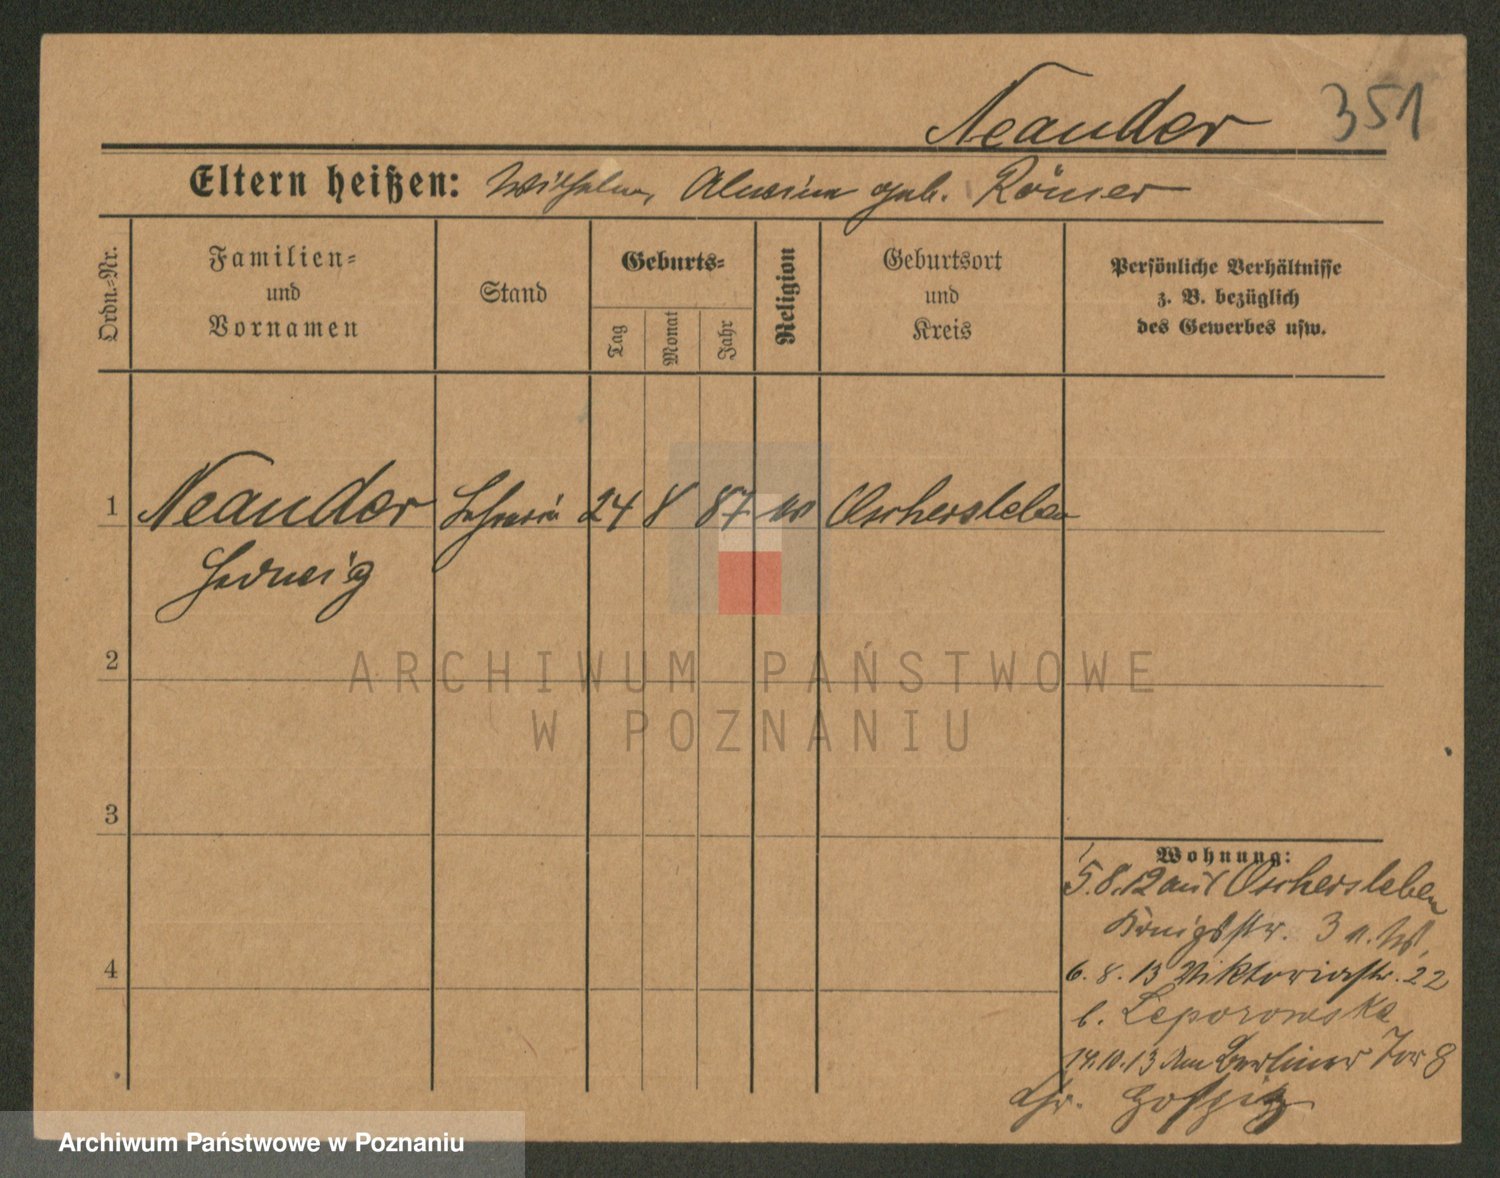 Neander 351
Eltern heißen: Wilhelm, Alwine geb. Römer
Ordn.-Nr.
Familien-
und
Vornamen
Stand
Geburts-
Tag
Monat
Jahr
Religion
Geburtsort
und
Kreis
Persönliche Verhältnisse
z. B. bezüglich
des Gewerbes usw.
1 Neander Lehrerin 24 8 87 Oschersleben
Hedwig
2
ARCHIWUM PAŃSTWOWE
W POZNANIU
3
Wohnung:
5.8.12 aus Oschersleben
Königsstr. 3
6.8.13 Viktoriastr. 22
b. Leporowska
14.10.13 Am Berliner Tor 8
Chr. Hospiz
4
Archiwum Państwowe w Poznaniu